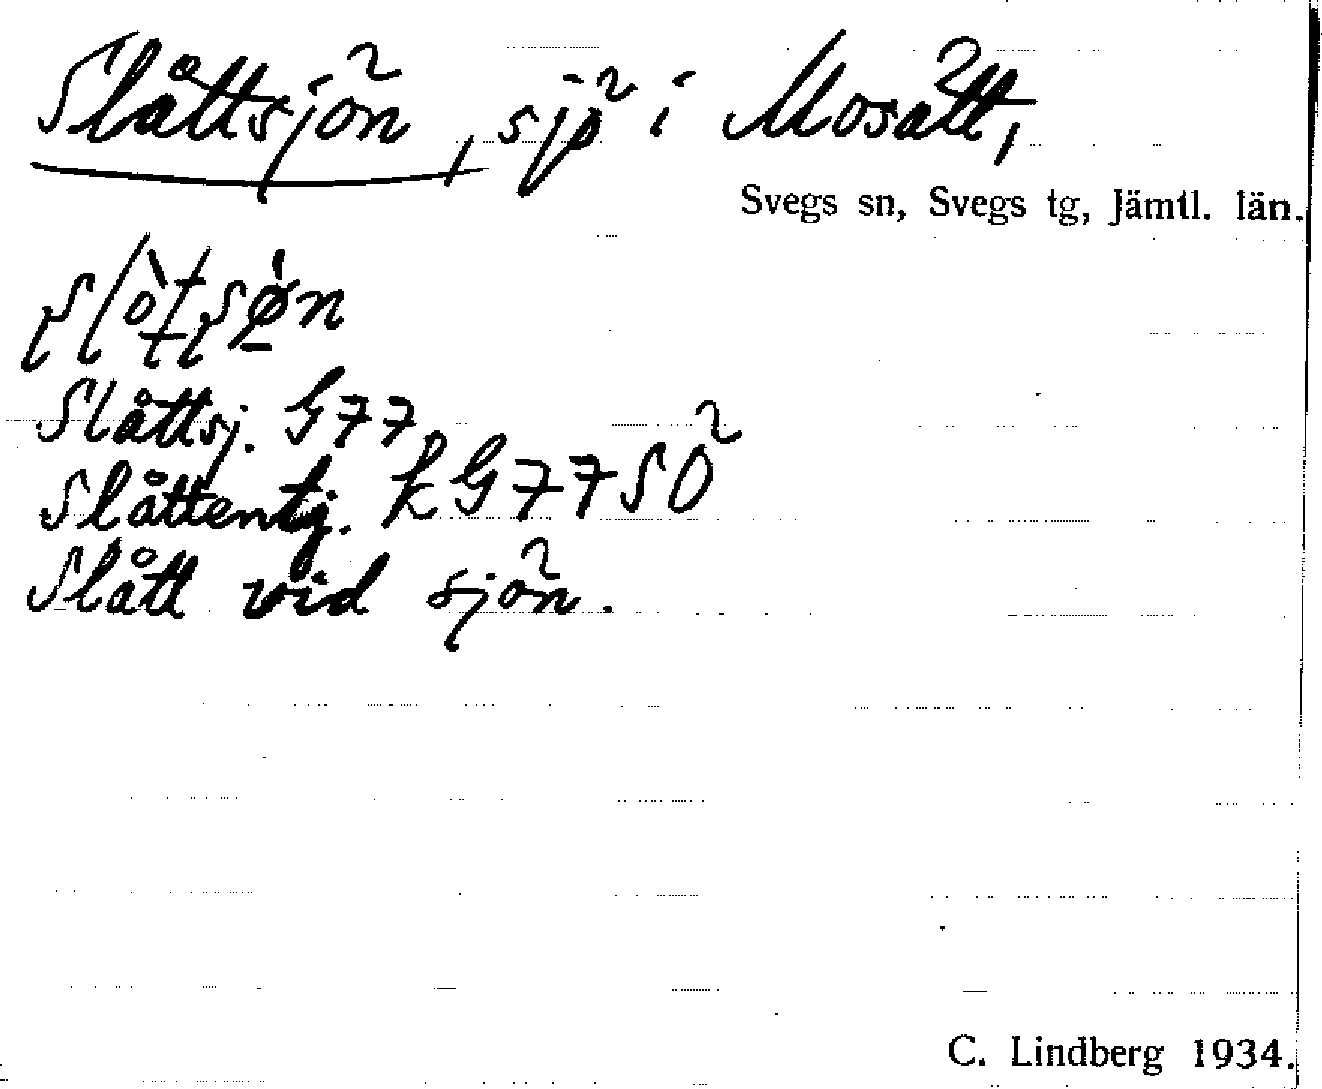 Slåttsjön, sjö i Mosätt,
Svegs sn, Svegs tg, Jämtl. län.
Slåttsj. G77
Slåttentj. k G77SO
Slått vid sjön.
C. Lindberg 1934.